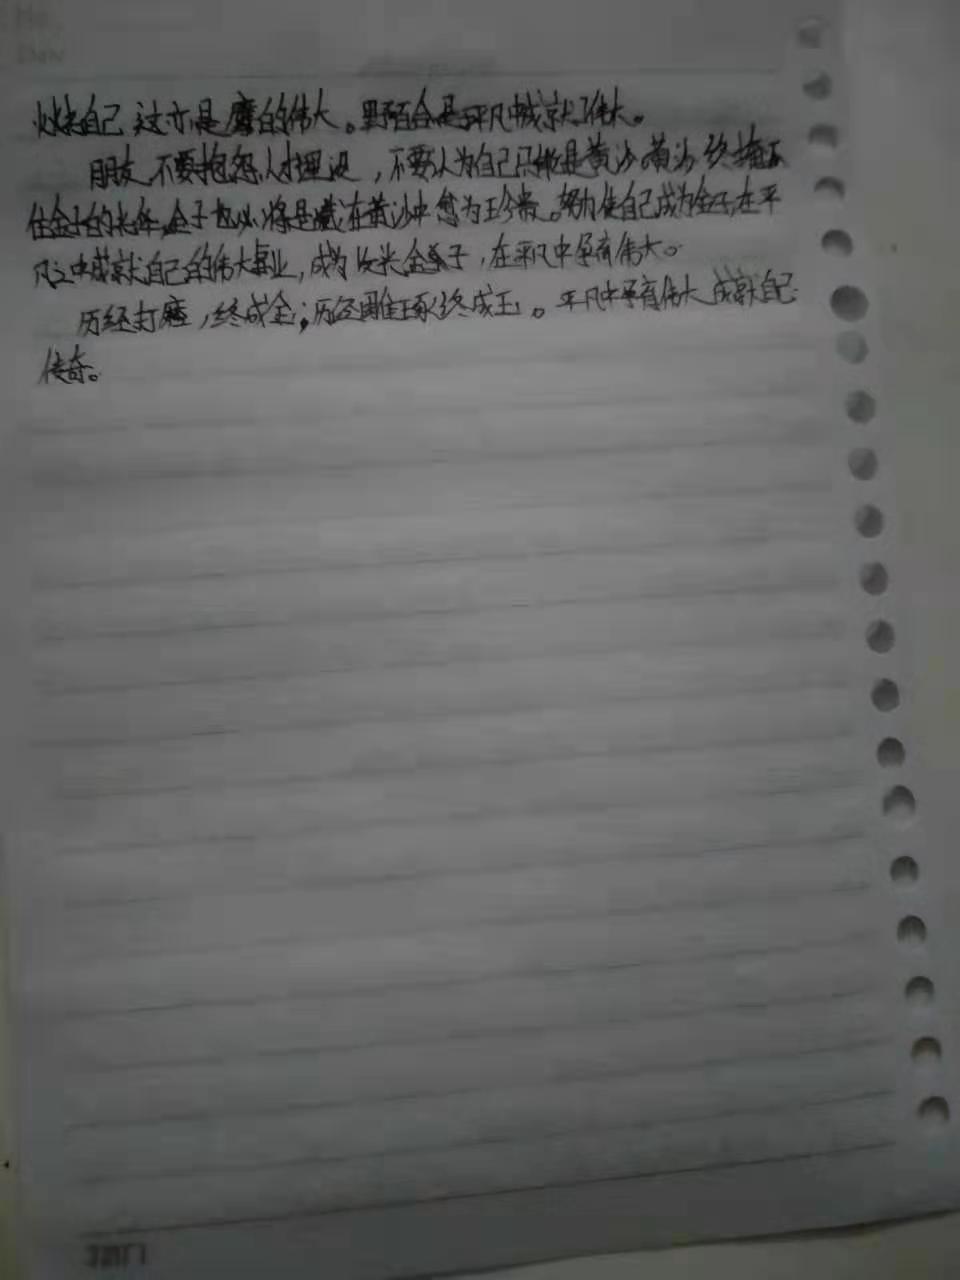 燃烧自己 这亦是磨的伟大。野百合是平凡中成就了伟大。
朋友 不要抱怨人才埋没，不要认为自己只能是黄沙 黄沙终掩不
住金子的光华,金子也必将是藏在黄沙中 愈为珍贵。努力使自己成为金子,在平
凡之中成就自己的伟大事业，成为发光金子，在平凡中孕育伟大。
历经打磨，终成金；历经雕琢终成玉。平凡中孕育伟大 成就自己
传奇。